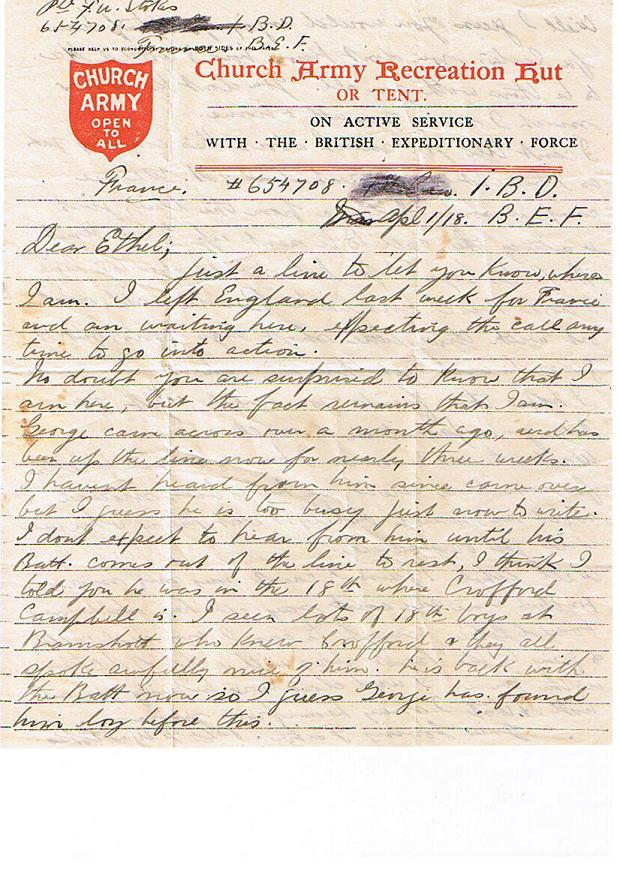 Pte F. W. Stokes
654708. I. B. D.
B. E. F.
PLEASE HELP US TO BOTH SIDES OF
CHURCH
ARMY
OPEN
TO
ALL
Church Army Recreation Hut
OR TENT.
ON ACTIVE SERVICE
WITH · THE · BRITISH · EXPEDITIONARY · FORCE
France. #654708. I. B. D.
Apl 1/18. B. E. F.
Dear Ethel;
Just a line to let you know, where
I am. I left England last week for France
and am waiting here, expecting the call any
time to go into action.
No doubt you are surprised to know that I
am here, but the fact remains that I am.
George came across over a month ago, and has
been up the line now for nearly three weeks.
I havent heard from him since came over
but I guess he is too busy just now to write.
I dont expect to hear from him until his
Batt. comes out of the line to rest, I think I
told you he was in the 18th where Crofford
Campbell is. I seen lots of 18th boys at
Bramshott who knew Crofford & they all
spoke awfully nice of him. he is back with
the Batt now so I guess George has found
him long before this.